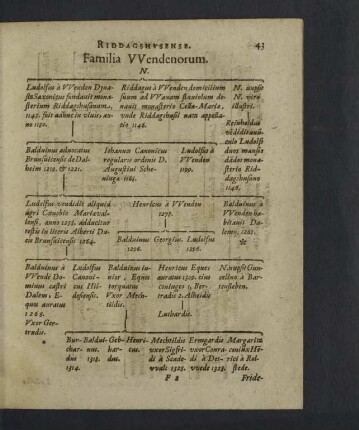 RIDDAGSHVSENSE. 43
Familia VVendenorum.
N.
Ludolfus à VVenden Dyna-
sta Saxonicus fundavit mona-
sterium Riddagshusanum,
1145. fuit adhuc in vivis, an-
no 1150.
Riddagus à VVenden, domicilium
suum ad VVanam fluviolum do-
navit monasterio Cella-Maria,
unde Riddagshusii nata appella-
tio 1146.
N. nupsit
N. viro
illustri.
Ludolfi
duos mansos
dedit mona-
sterio Rid-
dagshusano
1146.
Balduinus advocatus
Brunsuicensis de Dal-
heim 1219. & 1221.
Iohannes Canonicus
regularis ordinis D.
Augustini Sche-
ninga 1184.
Ludolfus à
VVenden
1199.
Ludolfus vendidit aliquid
agri Cœnobio Mariæval-
lensi, anno 1255. adducitur
testis in literis Alberti Du-
cis Brunsuicensis 1264.
Henricus à VVenden
1277.
Balduinus à
VVenden ha-
bitavit Da-
lemi, 1261.
*
Balduinus Georgius. Ludolfus
1296. 1296.
Balduinus à
VVende Do-
minus in
Dalem, E-
ques auratus
1268.
Vxor Ger-
trudis.
Ludolfus
Canoni-
cus Hil-
desensis.
Balduinus iu-
nior, Eques
torquatus
Vxor Mech-
tildis.
Henricus Eques
auratus 1309. eius
coniuges castri
tradis 2. Alheidis
Luthardis.
N. nupsit Gun-
cellino à Bar-
tensleben.
Bur-
char-
dus
1314.
Baldui-
nus.
1318.
Geb-
har-
dus.
Henri-
cus.
Mechtildis
uxor Sigfri-
di à Scade-
wald 1328.
Ermgardis
uxor Conra-
di à Det-
wede 1328.
Margarita
F 2 Fride-